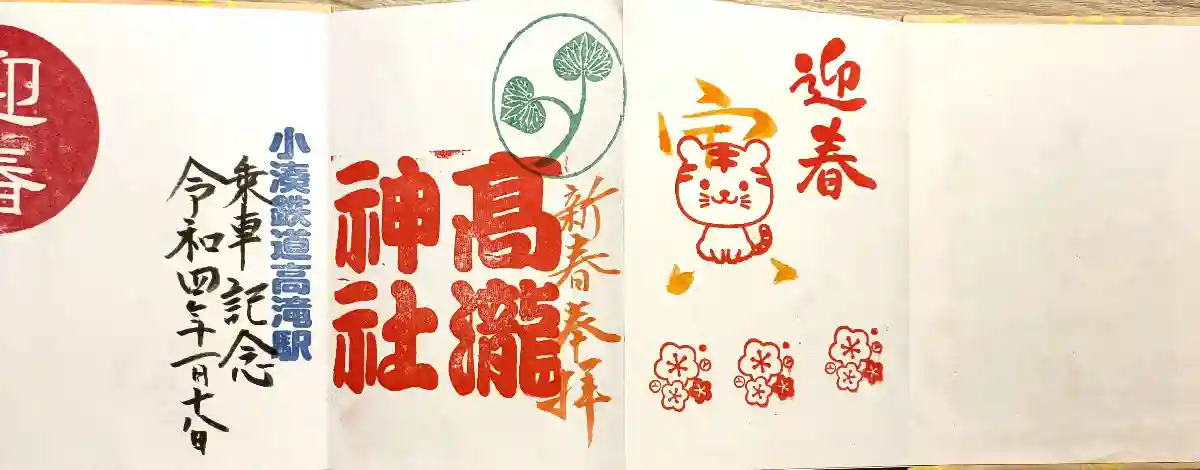 迎春
寅
新春奉拝
高瀧
神社
小湊鉄道高滝駅
乗車記念
令和四年一月十八日
迎春